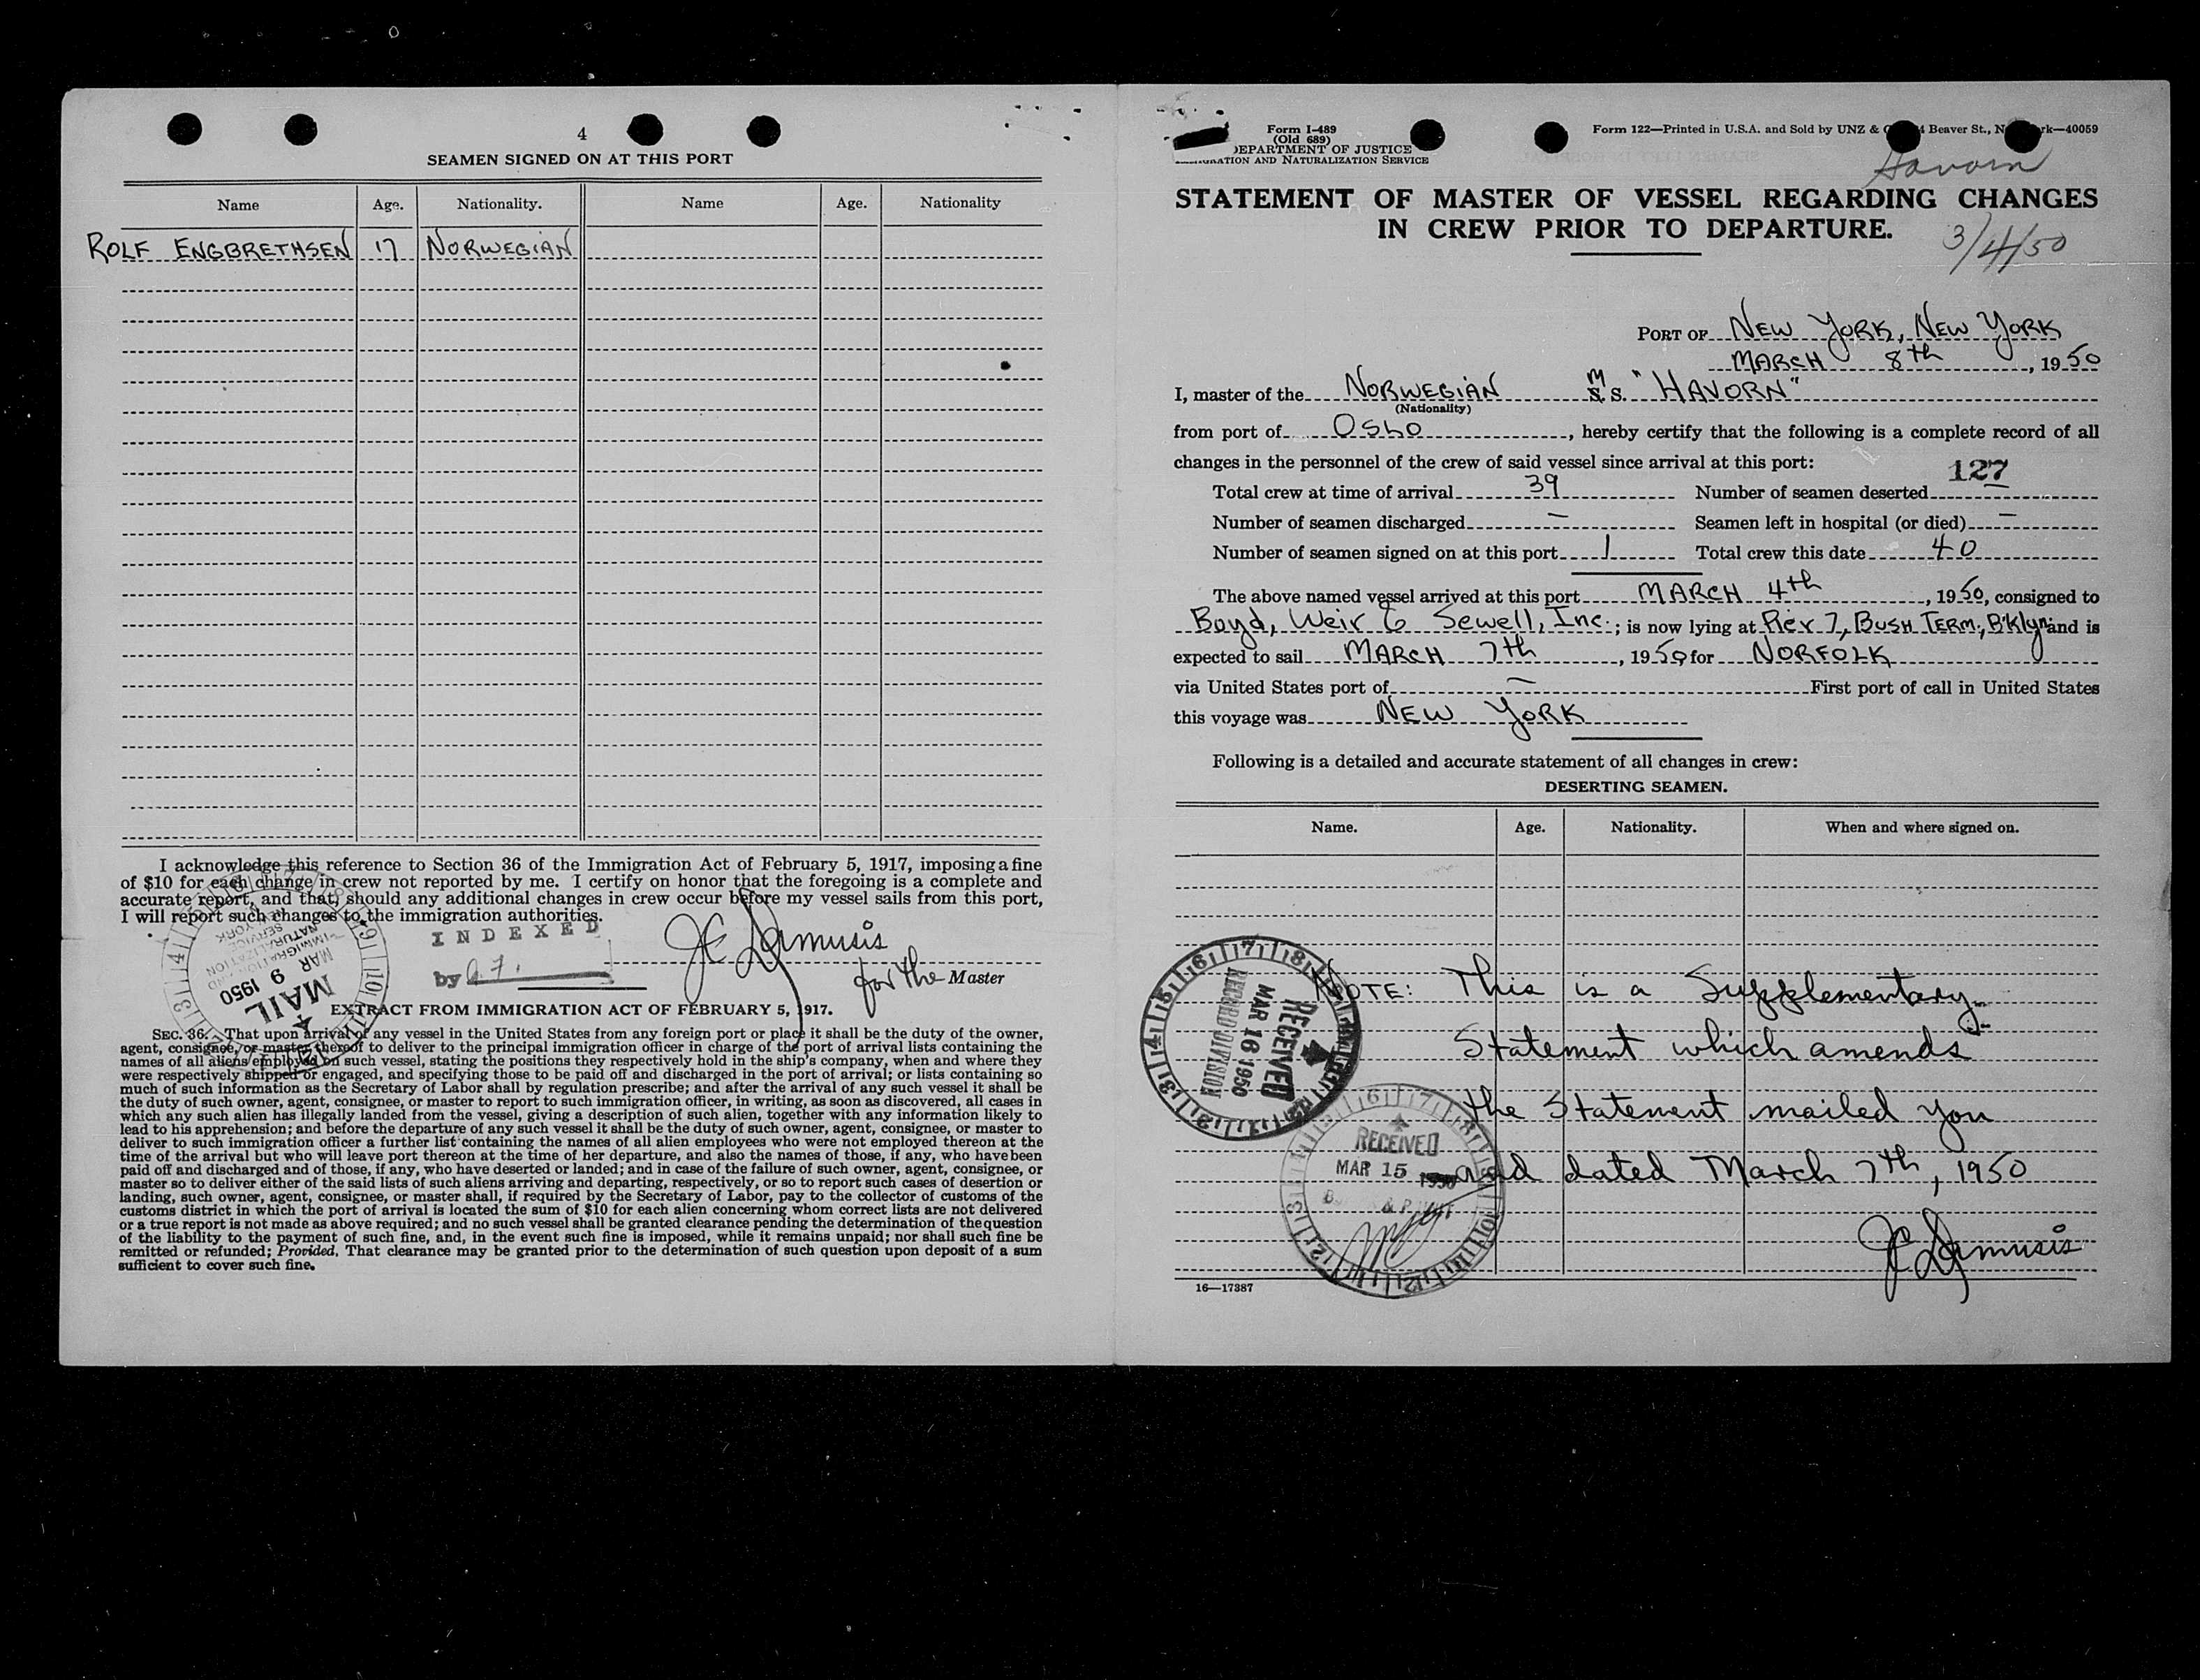 4
SEAMEN SIGNED ON AT THIS PORT
Name Age. Nationality. Name Age. Nationality
ROLF ENGBRETHSEN 17 NORWEGIAN
I acknowledge this reference to Section 36 of the Immigration Act of February 5, 1917, imposing a fine
of $10 for each change in crew not reported by me. I certify on honor that the foregoing is a complete and
accurate report, and that, should any additional changes in crew occur before my vessel sails from this port,
I will report such changes to the immigration authorities.
INDEXED
by
for the Master
MAIL
MAR 9 1950
IMMIGRATION AND
NATURALIZATION
SERVICE
EXTRACT FROM IMMIGRATION ACT OF FEBRUARY 5, 1917.
SEC. 36. That upon arrival of any vessel in the United States from any foreign port or place it shall be the duty of the owner,
agent, consignee, or master thereof to deliver to the principal immigration officer in charge of the port of arrival lists containing the
names of all aliens employed on such vessel, stating the positions they respectively hold in the ship's company, when and where they
were respectively shipped or engaged, and specifying those to be paid off and discharged in the port of arrival; or lists containing so
much of such information as the Secretary of Labor shall by regulation prescribe; and after the arrival of any such vessel it shall be
the duty of such owner, agent, consignee, or master to report to such immigration officer, in writing, as soon as discovered, all cases in
which any such alien has illegally landed from the vessel, giving a description of such alien, together with any information likely to
lead to his apprehension; and before the departure of any such vessel it shall be the duty of such owner, agent, consignee, or master to
deliver to such immigration officer a further list containing the names of all alien employees who were not employed thereon at the
time of the arrival but who will leave port thereon at the time of her departure, and also the names of those, if any, who have been
paid off and discharged and of those, if any, who have deserted or landed; and in case of the failure of such owner, agent, consignee, or
master so to deliver either of the said lists of such aliens arriving and departing, respectively, or so to report such cases of desertion or
landing, such owner, agent, consignee, or master shall, if required by the Secretary of Labor, pay to the collector of customs of the
customs district in which the port of arrival is located the sum of $10 for each alien concerning whom correct lists are not delivered
or a true report is not made as above required; and no such vessel shall be granted clearance pending the determination of the question
of the liability to the payment of such fine, and, in the event such fine is imposed, while it remains unpaid; nor shall such fine be
remitted or refunded; Provided, That clearance may be granted prior to the determination of such question upon deposit of a sum
sufficient to cover such fine.
Form I-489
(Old 689)
DEPARTMENT OF JUSTICE
IMMIGRATION AND NATURALIZATION SERVICE
Form 122—Printed in U.S.A. and Sold by UNZ & Beaver St., rk—40059
Havorn
STATEMENT OF MASTER OF VESSEL REGARDING CHANGES
IN CREW PRIOR TO DEPARTURE.
3/4/50
PORT OF NEW YORK, NEW YORK
MARCH 8th, 1950
I, master of the NORWEGIAN M S.S. "HAVORN"
(Nationality)
from port of OSLO, hereby certify that the following is a complete record of all
changes in the personnel of the crew of said vessel since arrival at this port:
127
Total crew at time of arrival 39 Number of seamen deserted —
Number of seamen discharged — Seamen left in hospital (or died) —
Number of seamen signed on at this port 1 Total crew this date 40
The above named vessel arrived at this port MARCH 4th, 1950, consigned to
Boyd, Weir & Sewell, Inc.; is now lying at Pier 7, BUSH TERM., B'klyn and is
expected to sail MARCH 7th, 1950 for NORFOLK
via United States port of — First port of call in United States
this voyage was NEW YORK
Following is a detailed and accurate statement of all changes in crew:
DESERTING SEAMEN.
Name. Age. Nationality. When and where signed on.
NOTE: This is a Supplementary
Statement which amends
the Statement mailed you
and dated March 7th, 1950
RECEIVED
MAR 16 1950
RECORD DIVISION
RECEIVED
MAR 15 1950
16—17387